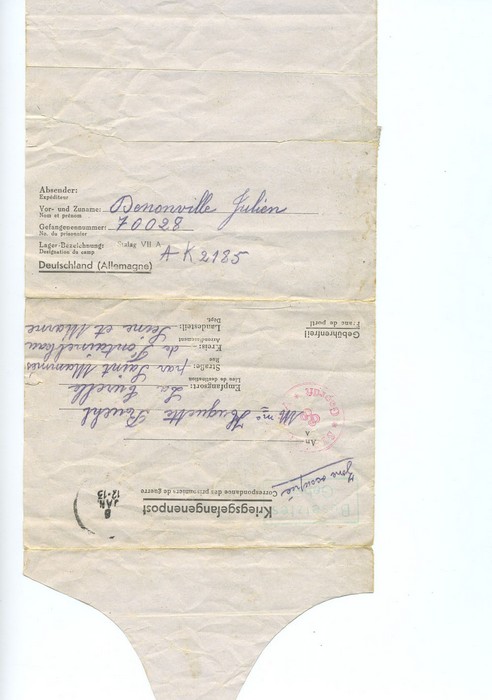 Absender:
Expéditeur
Vor- und Zuname: Bononville Julien
Nom et prénom
Gefangenennummer: 70028
No. du prisonnier
Lager-Bezeichnung: Stalag VII A
Désignation du camp
A K 2185
Deutschland (Allemagne)
Kriegsgefangenenpost
Correspondance des prisonniers de guerre
8
JAN
12-13
Zone occupée
An
A
Mme Huguette
Geprüft
Empfangsort: La
Lieu de destination
Straße: par Saint Mammès
Rue
Kreis: de Fontainebleau
Arrondissement
Landesteil: Seine et Marne
Dépt.
Gebührenfrei!
Franc de port!